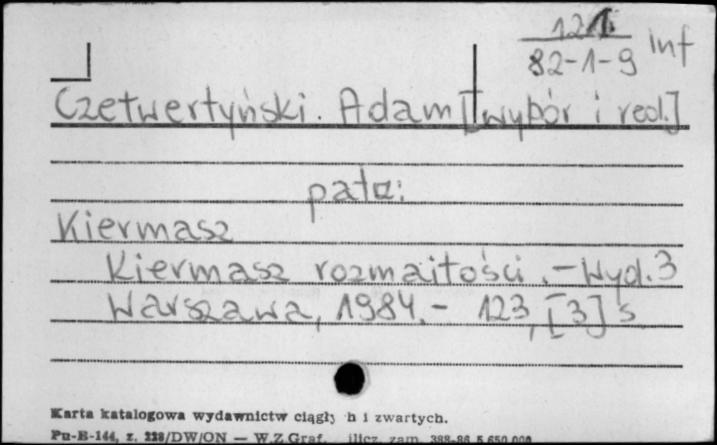 121. inf
82-1-9
Czetwertyński. Adam [wybór i red.]
patrz:
Kiermasz
Kiermasz rozmaitości. - Wyd. 3
Warszawa, 1984. - 123, [3] s
Karta katalogowa wydawnictw ciągłych i zwartych.
Pu-B-144, z. 228/DW/ON — W.Z.Graf. zam. 388-86 5.650.000